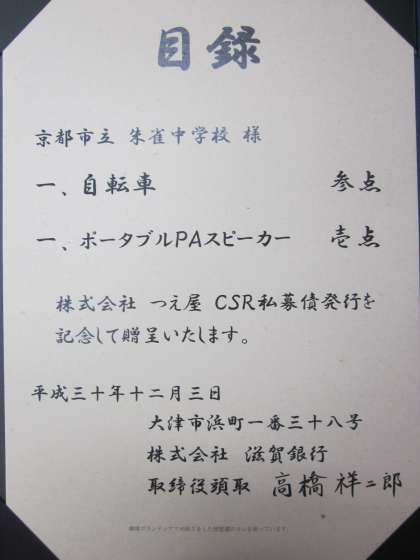 目録
京都市立 朱雀中学校 様
一、自転車 参点
一、ポータブルPAスピーカー 壱点
株式会社 つえ屋 CSR私募債発行を
記念して贈呈いたします。
平成三十年十二月三日
大津市浜町一番三十八号
株式会社 滋賀銀行
取締役頭取 高橋祥二郎